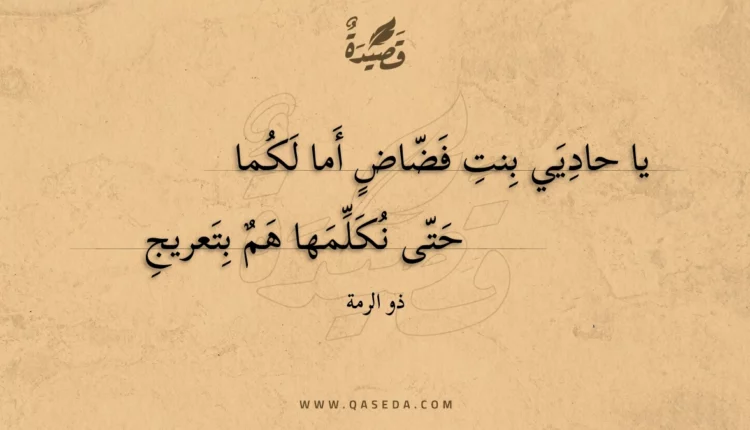 قَصِيْدَةٌ
يا حادِيَي بِنتِ فَضّاضٍ أَما لَكُما
حَتّى نُكَلِّمَها هَمٌ بِتَعريجِ
ذو الرمة
WWW.QASEDA.COM